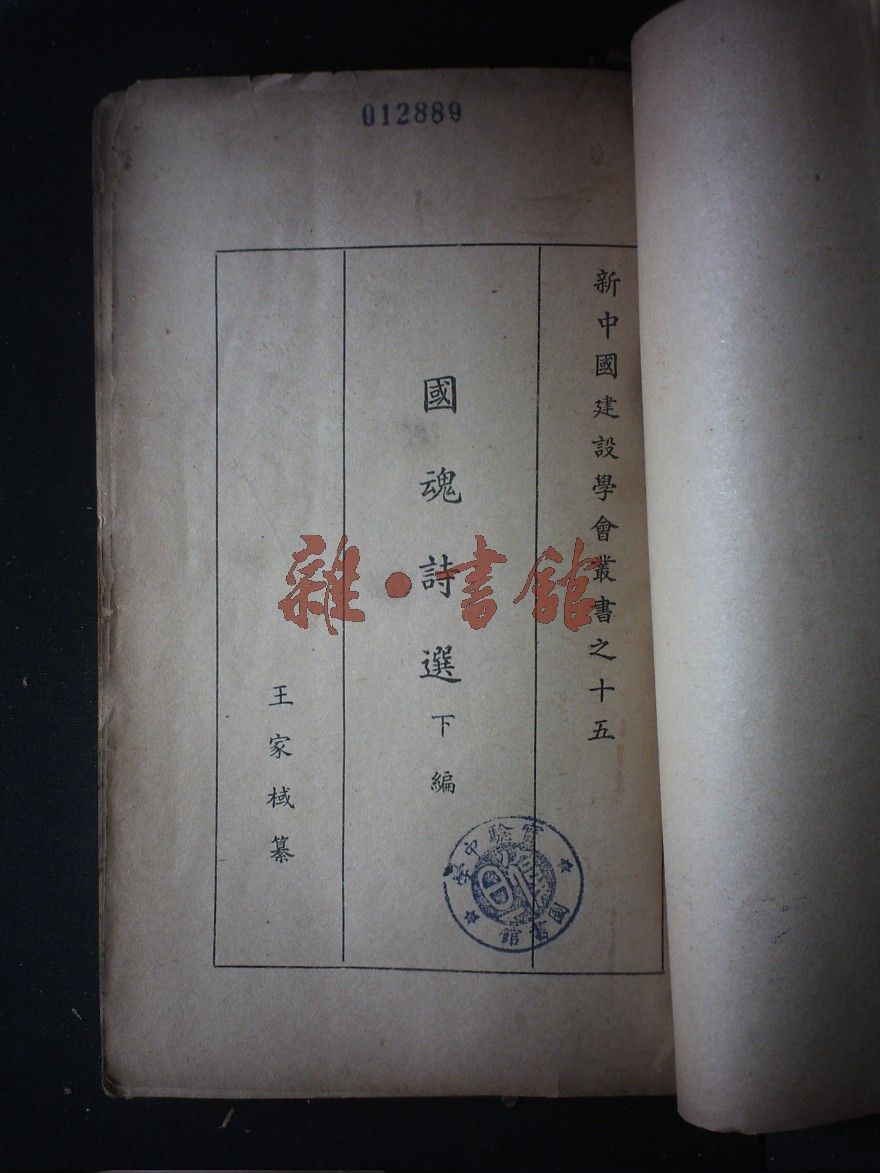 012889
新中國建設學會叢書之十五
國魂詩選下編
王家棫纂
雜·書館
實驗中學
圖書館